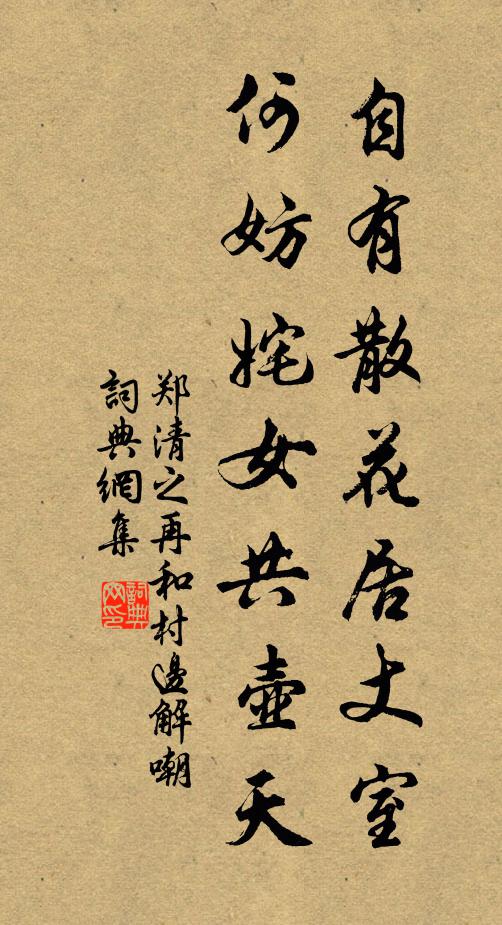 自有散花居丈室
何妨姹女共壺天
郑清之再和村邊解嘲
詞典網集
詞典网印